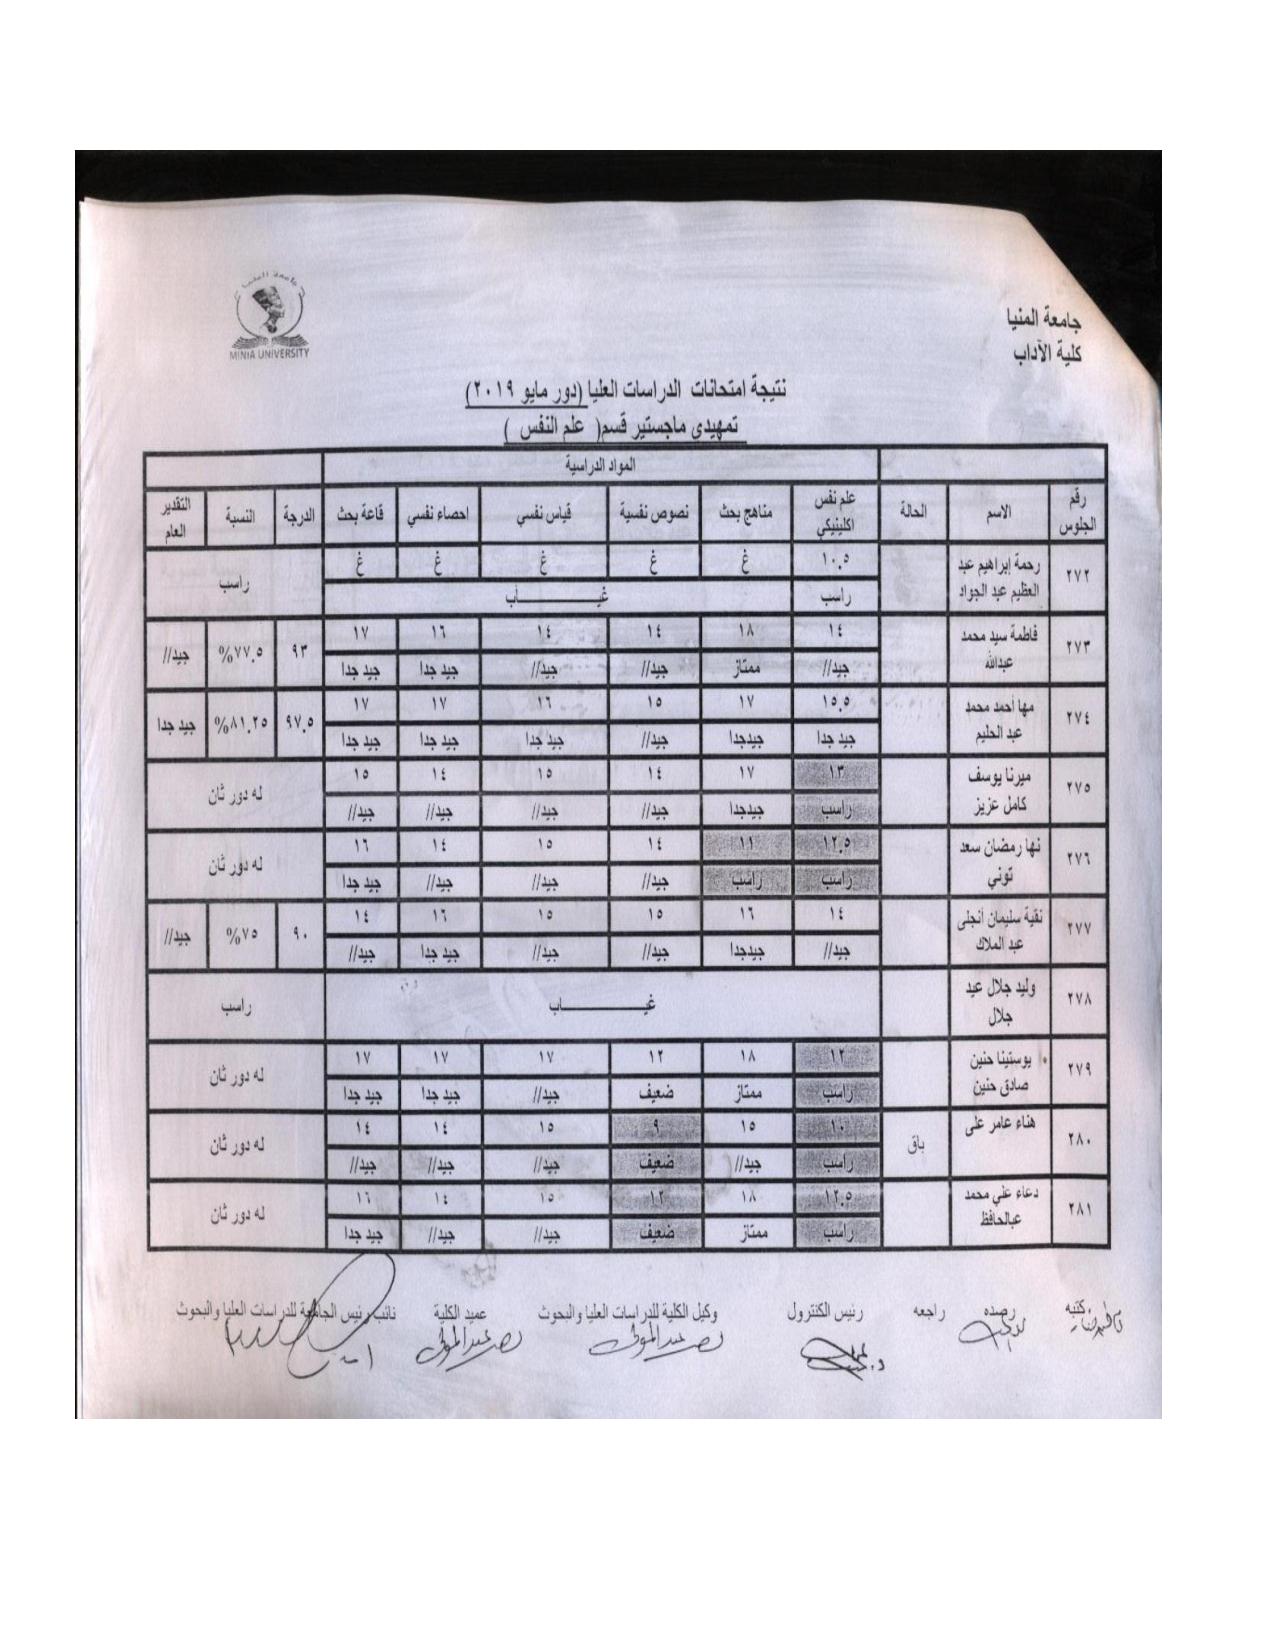 جامعة المنيا
MINIA UNIVERSITY
جامعة المنيا
كلية الآداب
نتيجة امتحانات الدراسات العليا (دور مايو ٢٠١٩)
تمهيدى ماجستير قسم( علم النفس )
المواد الدراسية
رقم الجلوس الاسم الحالة علم نفس اكلينيكي مناهج بحث نصوص نفسية قياس نفسي احصاء نفسي قاعة بحث الدرجة النسبة التقدير العام
٢٧٢ رحمة إبراهيم عبد العظيم عبد الجواد ١٠.٥ غ غ غ غ غ راسب
راسب غيـــــــاب
٢٧٣ فاطمة سيد محمد عبدالله ١٤ ١٨ ١٤ ١٤ ١٦ ١٧ ٩٣ ٧٧.٥% جيد//
جيد// ممتاز جيد// جيد// جيد جدا جيد جدا
٢٧٤ مها أحمد محمد عبد الحليم ١٥.٥ ١٧ ١٥ ١٦ ١٧ ١٧ ٩٧.٥ ٨١.٢٥% جيد جدا
جيد جدا جيدجدا جيد// جيد جدا جيد جدا جيد جدا
٢٧٥ ميرنا يوسف كامل عزيز ١٣ ١٧ ١٤ ١٥ ١٤ ١٥ له دور ثان
راسب جيدجدا جيد// جيد// جيد// جيد//
٢٧٦ نها رمضان سعد توني ١٢.٥ ١١ ١٤ ١٥ ١٤ ١٦ له دور ثان
راسب راسب جيد// جيد// جيد// جيد جدا
٢٧٧ نقية سليمان أنجلى عبد الملاك ١٤ ١٦ ١٥ ١٥ ١٦ ١٤ ٩٠ ٧٥% جيد//
جيد// جيدجدا جيد// جيد// جيد جدا جيد//
٢٧٨ وليد جلال عيد جلال غيـــــــاب راسب
٢٧٩ يوستينا حنين صادق حنين ١٢ ١٨ ١٢ ١٧ ١٧ ١٧ له دور ثان
راسب ممتاز ضعيف جيد// جيد جدا جيد جدا
٢٨٠ هناء عامر على باق ١٠ ١٥ ٩ ١٥ ١٤ ١٤ له دور ثان
راسب جيد// ضعيف جيد// جيد// جيد//
٢٨١ دعاء علي محمد عبالحافظ ١٢.٥ ١٨ ١٢ ١٥ ١٤ ١٦ له دور ثان
راسب ممتاز ضعيف جيد// جيد// جيد جدا
كتبه رصده راجعه رئيس الكنترول وكيل الكلية للدراسات العليا والبحوث عميد الكلية نائب رئيس الجامعة للدراسات العليا والبحوث